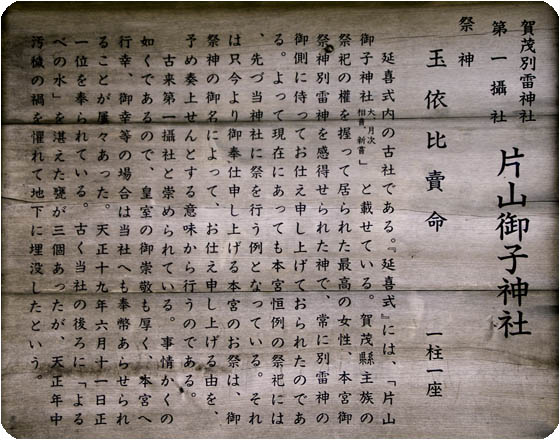 賀茂別雷神社
第一攝社 片山御子神社
祭神
玉依比賣命 一柱一座
延喜式内の古社である。『延喜式』には、「片山
御子神社 大、月次相嘗、新嘗」と載せている。賀茂縣主族の
祭祀の權を握って居られた最高の女性、本宮御
祭神別雷神を感得せられた神で、常に別雷神の
御側に侍ってお仕え申し上げておられたのであ
る。よって現在にあっても本宮恒例の祭祀には
、先づ当神社に祭を行う例となっている。それ
は只今より御奉仕申し上げる本宮のお祭は、御
祭神の御名によって、お仕え申し上げる由を、
予め奏上せんとする意味から行うのである。
古来第一攝社と崇められている。事情かくの
如くであるので、皇室の御崇敬も厚く、本宮へ
行幸、御幸等の場合は当社へも奉幣あらせられ
ることが屡々あった。天正十九年六月十一日正
一位を奉られている。古く当社の後ろに「よる
べの水」を湛えた甕が三個あったが、天正年中
汚穢の禍を惧れて地下に埋没したという。